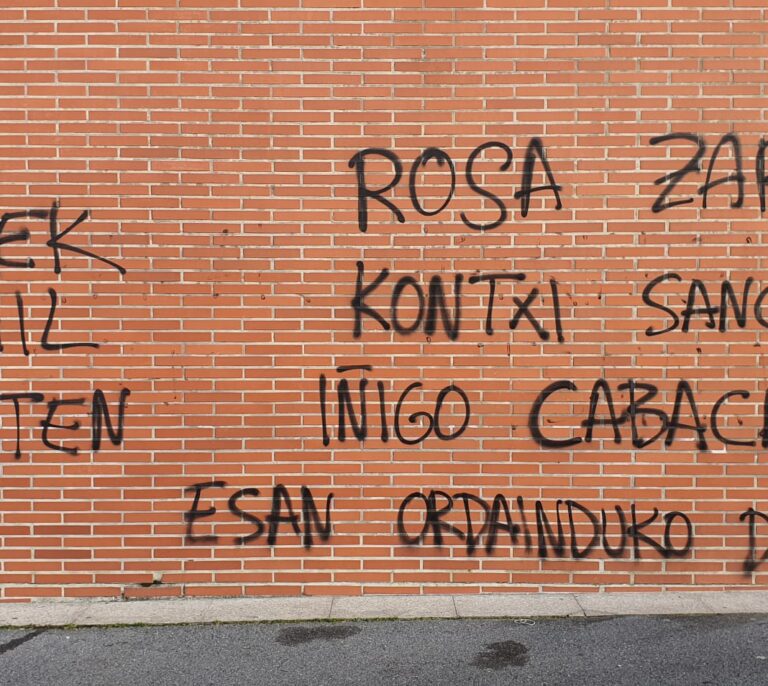 ROSA ZAR
EK KONTXI SANC
IL IÑIGO CABACA
TEN ESAN ORDAINDUKO D